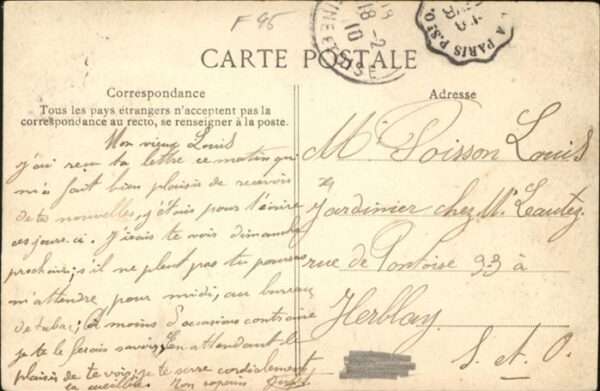 F 95
18-2
10
A PARIS P.St O.
CARTE POSTALE
Correspondance
Tous les pays étrangers n'acceptent pas la
correspondance au recto, se renseigner à la poste.
Mon vieux Louis
j'ai reçu ta lettre ce matin qui
m'a fait bien plaisir de recevoir
de tes nouvelles, j'étais pour t'écrire
ces jours-ci. J'irais te voir dimanche
prochain; s'il ne pleut pas tu pourras
m'attendre pour midi, au bureau
de tabac; à moins d'occasions contraire
je te le ferais savoir. En attendant le
plaisir de te voir; je te serre cordialement
la cueillère. Ton copain
Adresse
Mr Poisson Louis
Jardinier chez Mr
rue de Pontoise 33 à
Herblay
S. et O.